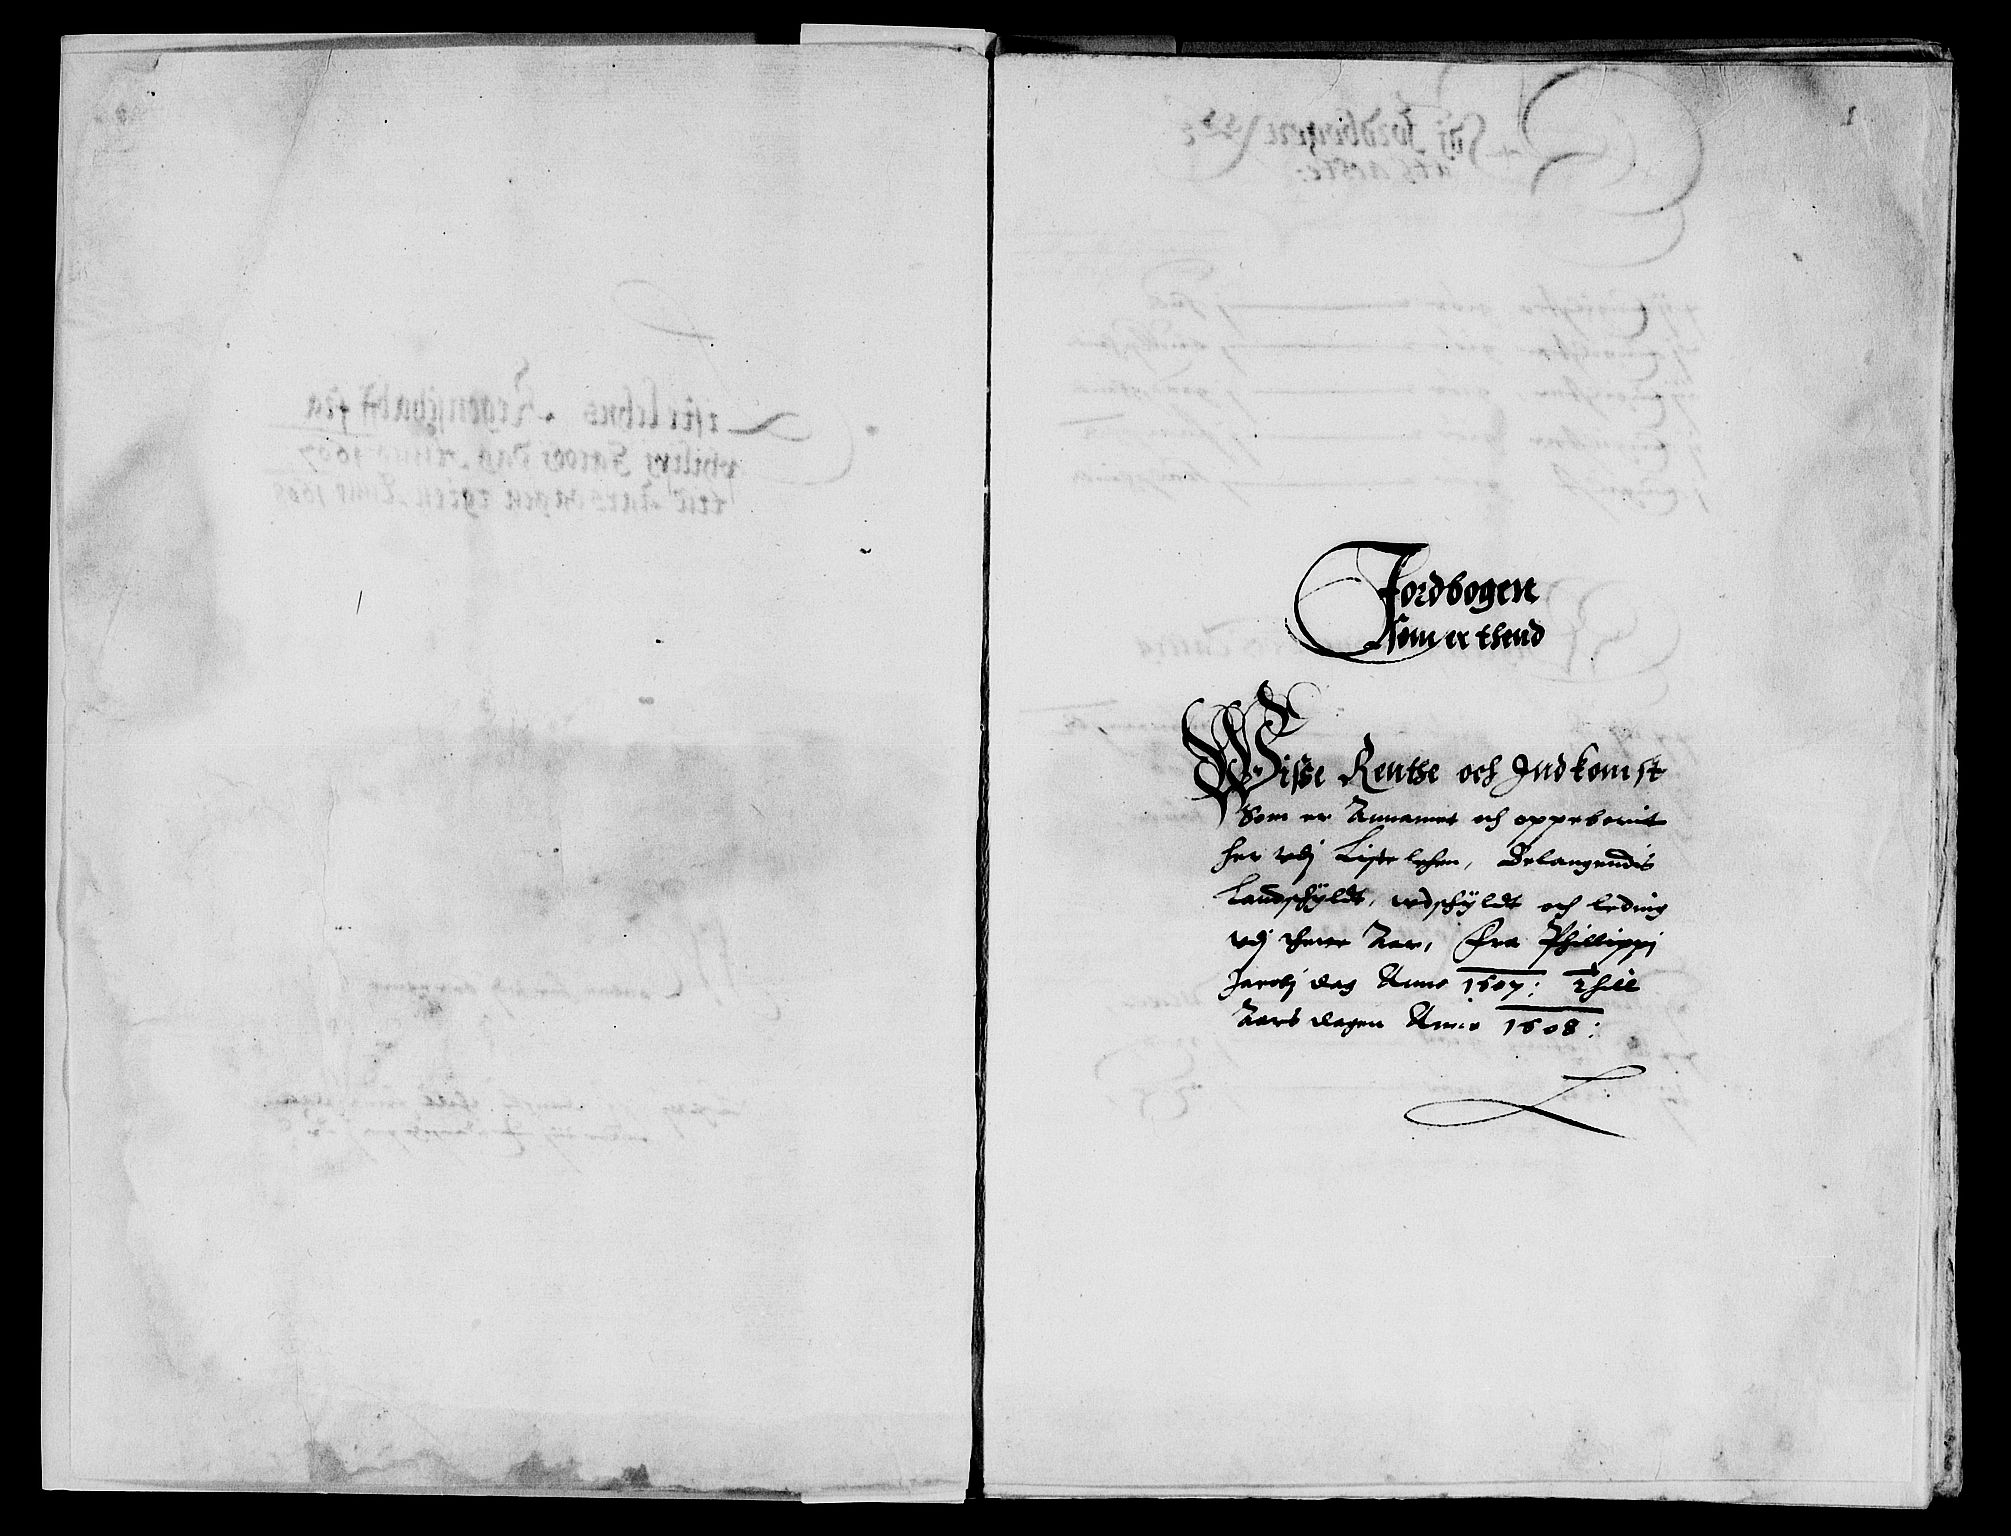 1
Jordbogen
som er thend
Wisse Renthe och Indkomst
Som er Annamet och oppeborit
her vdj Liste lehen, Belangendis
Landschÿldt, vdschÿldt och leding
vdj thette Aar, Fra Phillippi
Jacobj dag Anno 1607: Thill
Aars dagen Anno 1608: